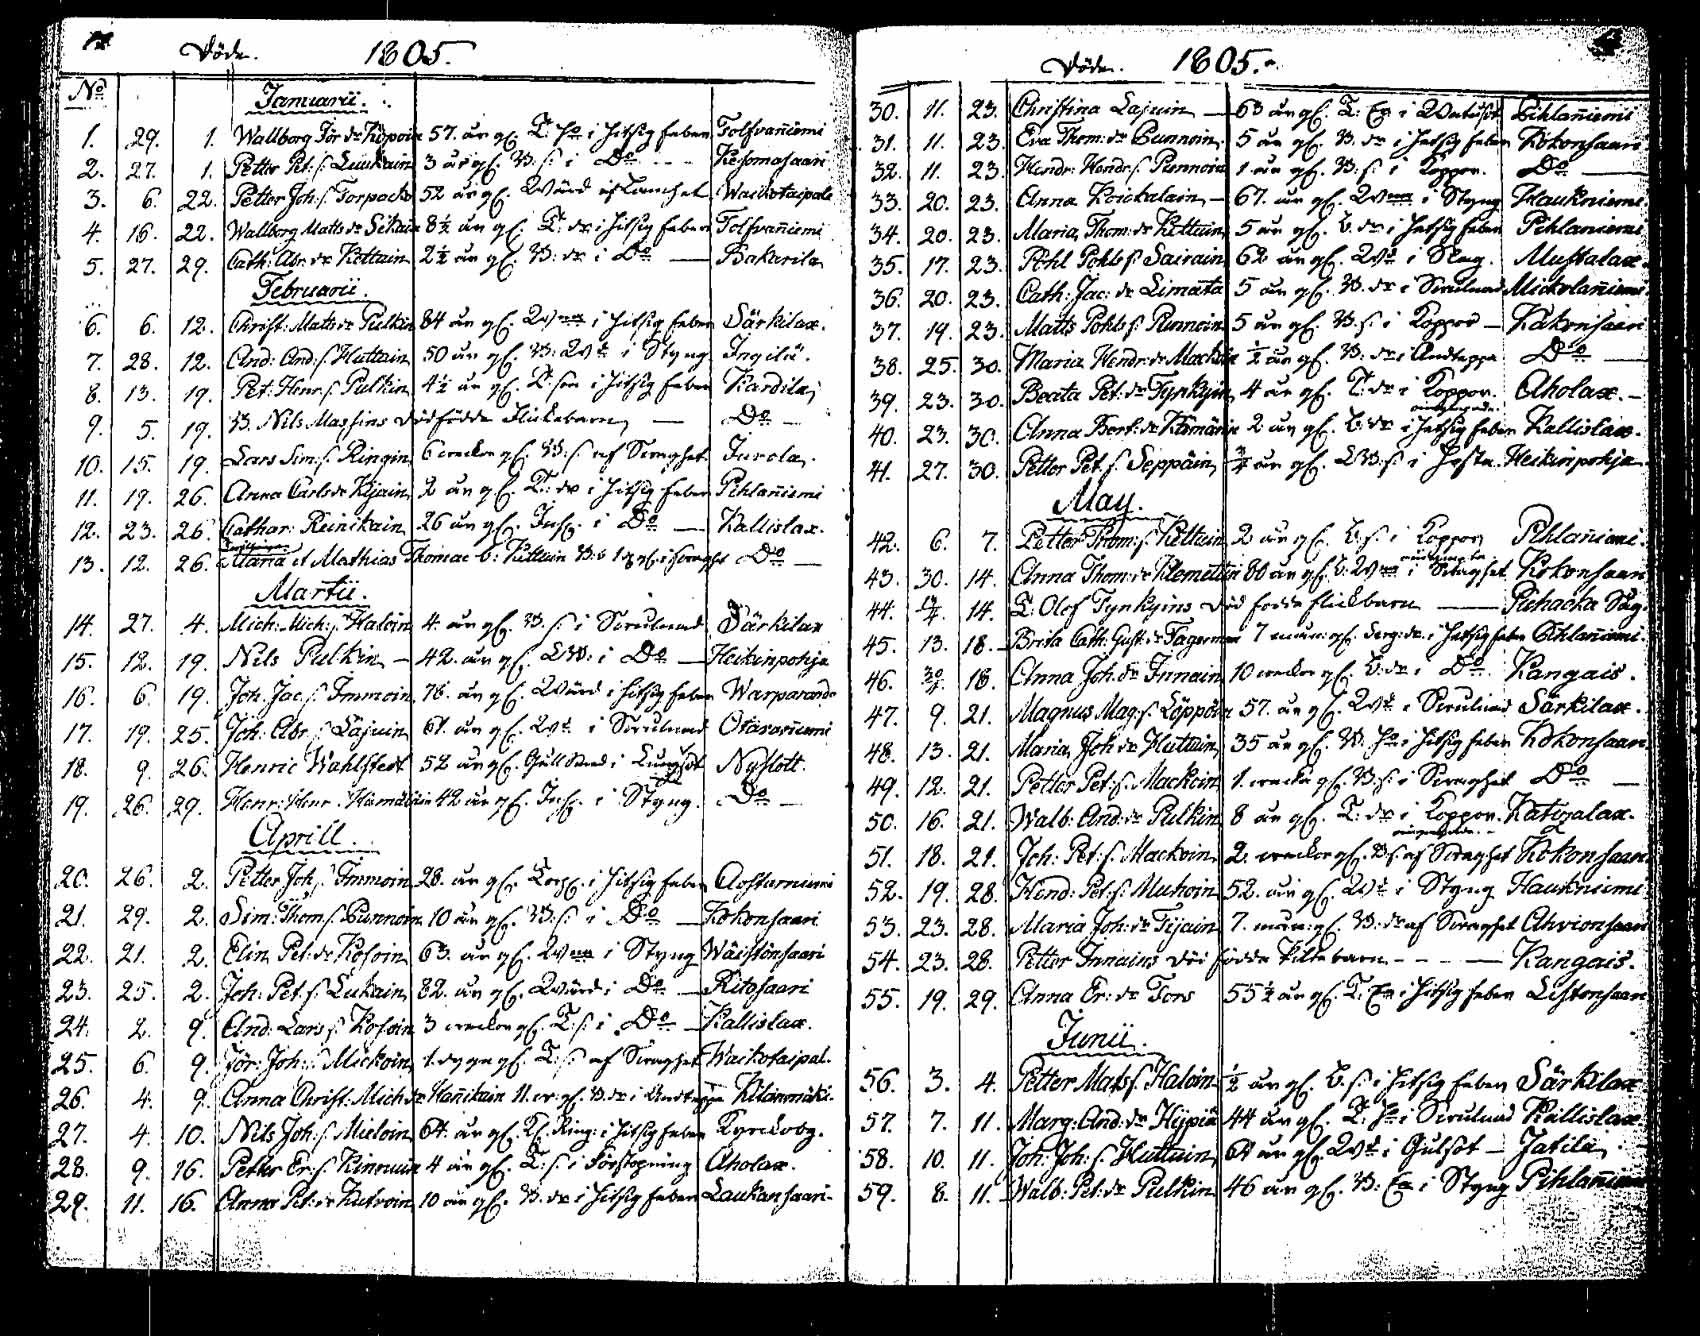 Döde. 1805.
No
Januarii.
1. 29. 1. Wallborg Jör: dr Köpoin 57. år gl. T. ha i hitsig feber Tolfvaniemi
2. 27. 1. Petter Pet: s. Luukain 3 år gl. B. s. i Do Kesomasaari
3. 6. 22. Petter Joh: s. Torpacko 52 år gl. Wärd af Lamhet Waickotaipale
4. 16. 22. Wallborg Matts dr Sikain 8½ år gl. T: dr i hitsig feber Tolfvaniemi
5. 27. 29. Cath: Abr: dr Kettuin 2½ år gl. B: dr i Do Pakarila
Februarii.
6. 6. 12. Christ: Matts dr Pulkin 84 år gl. i hitsig feber Särkilax.
7. 28. 12. And: And: s. Huttain 50 år gl. B: i Styng Ingilä.
8. 13. 19. Pet: Henr: s. Pulkin 4½ år gl. T. son i hitsig feber Kardila
9. 5. 19. B. Nils Massins dödfödda Flickebarn Do
10. 15. 19. Lars Sim: s. Ringin 6 weckor gl. B: s. af Swaghet Jurola.
11. 19. 26. Anna Carls dr Kijain 2 år gl. T: dr i hitsig feber Pihlaniemi
12. 23. 26. Cathar: Reinikain 26 år gl. Inh. i Do Kallislax.
13. 12. 26. Maria et Mathias Thomae b: Kettuin Do
Martii.
14. 27. 4. Mich: Mich: s. Haloin 4. år gl. B. s. i Särkilax
15. 12. 19. Nils Pulkin 42. år gl. i Do Heikinpohja
16. 6. 19. Joh. Jac: s. Immoin 76 år gl. Wärd i hitsig feber Warparanda
17. 19. 25. Joh: Abr: s. Lajuin 61. år gl. i Otavaniemi
18. 9. 26. Henric Wahlstedt 52 år gl. i Lungsot Nyslott.
19. 26. 29. Henr: Henr: s. Hämäläin 42 år gl. Inh. i Styng. Do
Aprill.
20. 26. 2. Petter Joh: s. Immoin 28. år gl. i hitsig feber
21. 29. 2. Sim: Thom: s. Punnoin 10 år gl. B: s. i Do Kokonsaari
22. 21. 2. Elin Pet: dr Kosoin 63. år gl. i Styng Wäistönsaari
23. 25. 2. Joh: Pet: s. Lukain 82. år gl. Wärd i Do Ritosaari
24. 2. 9. And: Lars s. Kosoin 3 weckor gl. T: s. i Do Kallislax.
25. 6. 9. Jör: Joh: s. Mickoin 1. dygn gl. T: s. af Swaghet Waikotaipal.
26. 4. 9. Anna Christ: Mich dr Hanikain 11. w: gl. B. dr i Andtäppa Kilanmäki.
27. 4. 10. Nils Joh: s. Mieloin 64. år gl. i hitsig feber Kyrckobg.
28. 9. 16. Petter Er: s. Kinnuin 4 år gl. T: s. i Förstopning Aholax.
29. 11. 16. Anna Pet: dr Kutvoin 10 år gl. B. dr i hitsig feber Laukansaari
Döde. 1805.
30. 11. 23. Christina Lajuin 63 år gl. T: i Wattusot Pihlaniemi
31. 11. 23. Eva Thom: dr Punnoin 5 år gl. B. dr i hitsig feber Kokonsaari
32. 11. 23. Hendr: Hendr: s. Punnoin 1 år gl. B: s. i Koppor. Do
33. 20. 23. Anna Koickalain 67. år gl. i Styng Haukniemi
34. 20. 23. Maria Thom: dr Kettuin 5 år gl. B. dr i hitsig feber Pihlaniemi
35. 17. 23. Påhl Påhls s. Sairain 62 år gl. i Slag. Mustalax.
36. 20. 23. Cath: Jac: dr Limatta 5 år gl. B. dr i Mickolaniemi
37. 19. 23. Matts Påhls s. Punnoin 5 år gl. B: s. i Koppor Kokonsaari
38. 25. 30. Maria Hendr: dr Mackoin ½ år gl. B: dr i Andteppa Do
39. 23. 30. Beata Pet: dr Tynkyin 4 år gl. T: dr i Koppor. Aholax.
40. 23. 30. Anna Bert: dr Hämäläin 2 år gl. B. dr i hitsig feber Kallislax.
41. 27. 30. Petter Pet: s. Seppäin ¾ år gl. s. i Hosta Heikinpohja
May.
42. 6. 7. Petter Thom: s. Kettuin 2 år gl. B. s. i Koppor Pihlaniemi.
43. 30. 14. Anna Thom: dr Klemettin 80 år gl. i Swaghet Kokonsaari
44. 14. T: Olof Tynkyins död födda flickbarn Pihacka Såg.
45. 13. 18. Brita Cath: Gust: dr Fagerman 7 mån: gl. Serg: dr. i hitsig feber Pihlaniemi.
46. 30/4 18. Anna Joh: dr Innain 10 weckor gl. B: dr i Do Kangais.
47. 9. 21. Magnus Mag: s. Löppöin 57. år gl. i Särkilax.
48. 13. 21. Maria Joh dr Huttain 35 år gl. B. ha i hitsig feber Kokonsaari
49. 12. 21. Petter Pet: s. Mackoin 1. wecka gl. B: s. i Swaghet Do
50. 16. 21. Walb: And: dr Pulkin 8 år gl. T: dr i Koppor. Katizalax.
51. 18. 21. Joh: Pet: s. Mackoin 2. weckor gl. B: s. af Swaghet Kokonsaari
52. 19. 28. Hend: Pet: s. Muhoin 52. år gl. i Styng Haukniemi
53. 23. 28. Maria Joh: dr Tijain 7. mån: gl. B. dr af Swaghet Ahvionsaari
54. 23. 28. Petter Innains död födda Piltebarn Kangais.
55. 19. 29. Anna Er: dr Tors 55½ år gl. T. i hitsig feber Listonsaari
Junii.
56. 3. 4. Petter Mats s. Haloin ½ år gl. B. s. i hitsig feber Särkilax
57. 7. 11. Marg: And: dr Hijpiä 44 år gl. T: ha i Kallislax
58. 10. 11. Joh: Joh: s. Huttuin 64 år gl. i Gulsot Jatila
59. 8. 11. Walb: Pet: dr Pulkin 46 år gl. B: i Styng Pihlaniemi